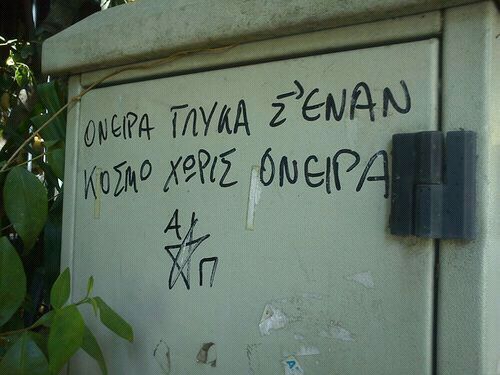 ΟΝΕΙΡΑ ΓΛΥΚΑ Σ'ΕΝΑΝ
ΚΟΣΜΟ ΧΩΡΙΣ ΟΝΕΙΡΑ
Α
Π